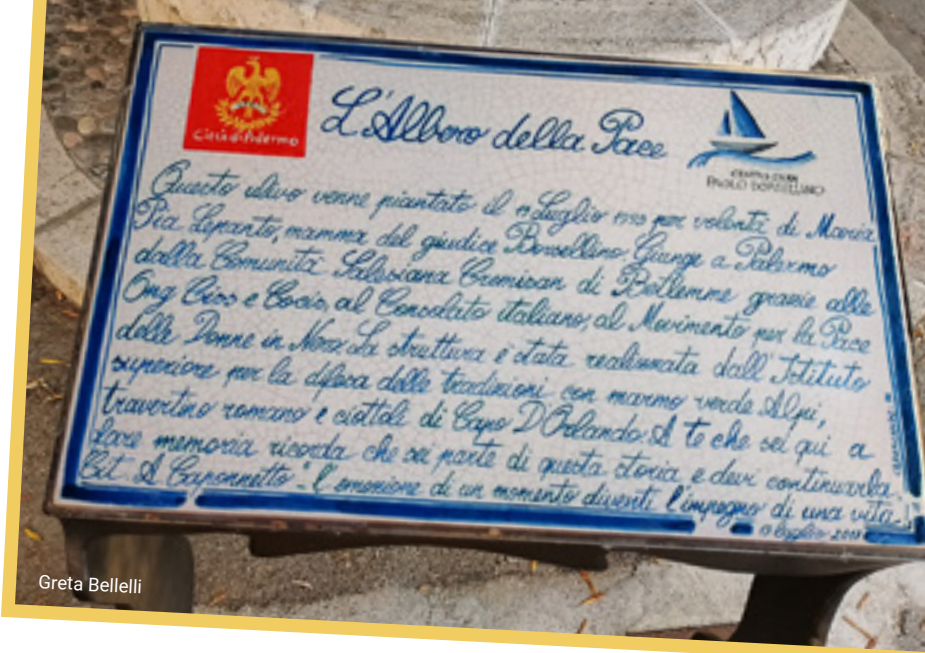 Città di Palermo
L'Albero della Pace
PAOLO BORSELLINO
Questo ulivo venne piantato il Luglio per volontà di Maria
Pia Lepanto, mamma del giudice Borsellino. Giunge a Palermo
dalla Comunità Salesiana Cremisan di Betlemme grazie alle
Ong Ciss e Cocis, al Consolato italiano, al Movimento per la Pace
delle Donne in Nero. La struttura è stata realizzata dall'Istituto
superiore per la difesa delle tradizioni con marmo verde Alpi,
travertino romano e ciottoli di Capo D'Orlando. A te che sei qui a
dare memoria ricorda che sei parte di questa storia e devi continuarla.
Cit. A. Caponnetto "l'emozione di un momento diventi l'impegno di una vita"
luglio
Greta Bellelli